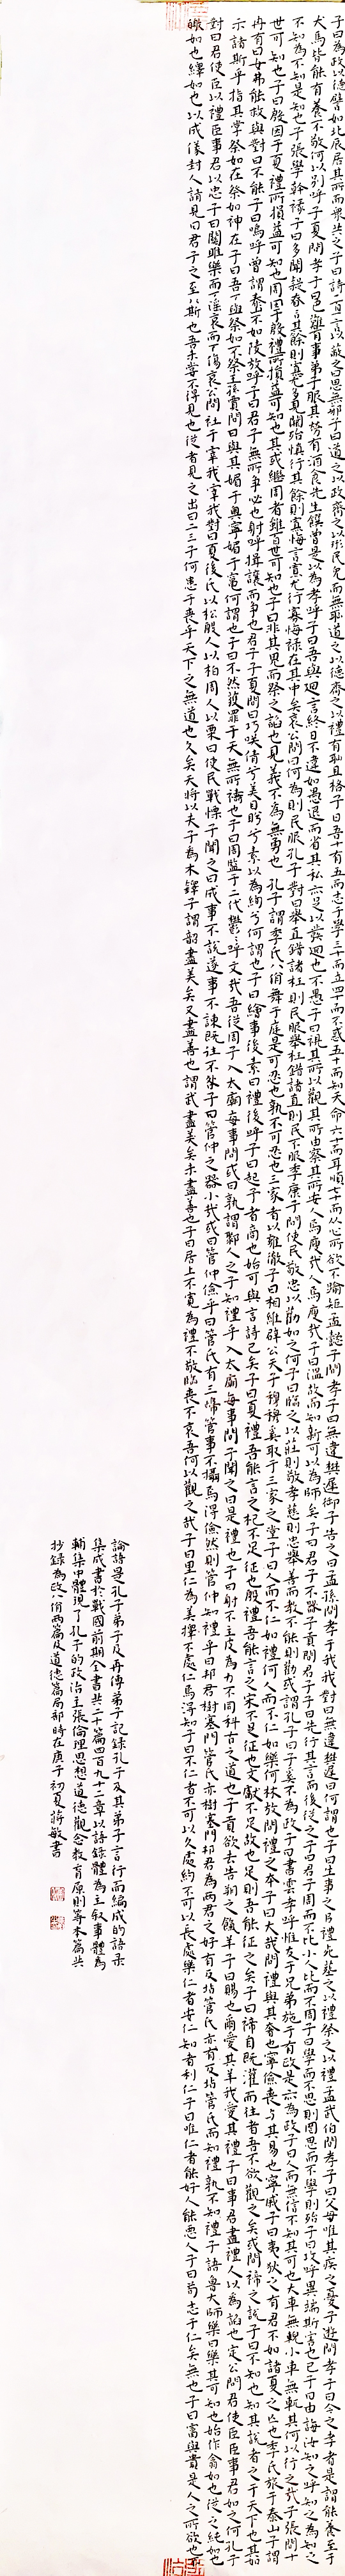 子曰為政以德譬如北辰居其所而衆共之子曰詩三百一言以蔽之曰思無邪子曰道之以政齊之以刑民免而無恥道之以德齊之以禮有恥且格子曰吾十有五而志于學三十而立四十而不惑五十而知天命六十而耳順七十而從心所欲不踰矩孟懿子問孝子曰無違樊遲御子告之曰孟孫問孝于我我對曰無違樊遲曰何謂也子曰生事之以禮死葬之以禮祭之以禮孟武伯問孝子曰父母唯其疾之憂子遊問孝子曰今之孝者是謂能養至于
犬馬皆能有養不敬何以別呼子夏問孝子曰色難有事弟子服其勞有酒食先生饌曾是以為孝呼子曰吾與廻言終日不違如愚退而省其私亦足以發廻也不愚子曰視其所以觀其所由察其所安人焉廋哉人焉廋哉子曰溫故而知新可以為師矣子曰君子不器子貢問君子子曰先行其言而後從之子曰君子周而不比小人比而不周子曰學而不思則罔思而不學則殆子曰攻呼異端斯害也已子曰由誨汝知之呼知之為知之
不知為不知是知也子張學幹祿子曰多聞疑慎言其餘則寡尤多見闕殆慎行其餘則寡悔言寡尤行寡悔祿在其中矣哀公問曰何為則民服孔子對曰舉直錯諸枉則民服舉枉錯諸直則民不服季康子問使民敬忠以勸如之何子曰臨之以莊則敬孝慈則忠舉善而教不能則勸或謂孔子曰子奚不為政子曰書雲孝呼惟友于兄弟施于有政是亦為政子曰人而無信不知其可也大車無輗小車無軏其何以行之哉子張問十
世可知也子曰殷因于夏禮所損益可知也周因于殷禮所損益可知也其或繼周者雖百世可知也子曰非其鬼而祭之諂也見義不為無勇也 孔子謂季氏八佾舞于庭是可忍也孰不可忍也三家者以雍徹子曰相維辟公天子穆穆奚取于三家之堂子曰人而不仁如禮何人而不仁如樂何林放問禮之本子曰大哉問禮與其奢也寧儉喪與其易也寧戚子曰夷狄之有君不如諸夏之亡也季氏旅于泰山子謂
冉有曰女弗能救與對曰不能子曰嗚呼曾謂泰山不如陵放呼子曰君子無所爭必也射呼揖讓而爭也君子子夏問曰巧笑倩兮美目盼兮素以為絢兮何謂也子曰繪事後素曰禮後呼子曰起予者商也始可與言詩已矣子曰夏禮吾能言之杞不足征也殷禮吾能言之宋不足征也文獻不足故也足則吾能征之矣子曰禘自既灌而往者吾不欲觀之矣或問禘之說子曰不知也知其說者之于天下也其如
示諸斯乎指其掌祭如在祭如神在子曰吾不與祭如不祭王孫賈問曰與其媚于奥寧媚于竈何謂也子曰不然獲罪于天無所禱也子曰周監于二代鬱呼文哉吾從周子入太廟每事問或曰孰謂鄹人之子知禮乎入太廟每事問子聞之曰是禮也子曰射不主皮為力不同科古之道也子貢欲去告朔之餼羊子曰賜也爾愛其羊我愛其禮子曰事君盡禮人以為諂也定公問君使臣臣事君如之何孔子
對曰君使臣以禮臣事君以忠子曰關雎樂而不淫哀而不傷哀公問社于宰我宰我對曰夏後氏以松殷人以柏周人以栗曰使民戰慄子聞之曰成事不說遂事不諫既往不咎子曰管仲之器小哉或曰管仲儉乎曰管氏有三歸管事不攝焉得儉然則管仲知禮乎曰邦君樹塞門管氏亦樹塞門邦君為兩君之好有反坫管氏亦有反坫管氏而知禮孰不知禮子語魯大師樂曰樂其可知也始作翕如也從之純如也
皦如也繹如也以成儀封人請見曰君子之至於斯也吾未嘗不得見也從者見之出曰二三子何患于喪乎天下之無道也久矣天將以夫子為木鐸子謂韶盡美矣又盡善也謂武盡美矣未盡善也子曰居上不寬為禮不敬臨喪不哀吾何以觀之哉子曰里仁為美擇不處仁焉得知子曰不仁者不可以久處約不可以長處樂仁者安仁知者利仁子曰唯仁者能好人能惡人子曰苟志于仁矣無也子曰富與貴是人之所欲也
論語是孔子弟子及再傳弟子記錄孔子及其弟子言行而編成的語錄
集成書於戰國前期全書共二十篇四百九十二章以語錄體為主叙事體為
輔集中體現了孔子的政治主張倫理思想道德觀念教育原則等本篇共
抄錄為政八佾兩篇及道德篇局部時在庚子初夏蔣敏書